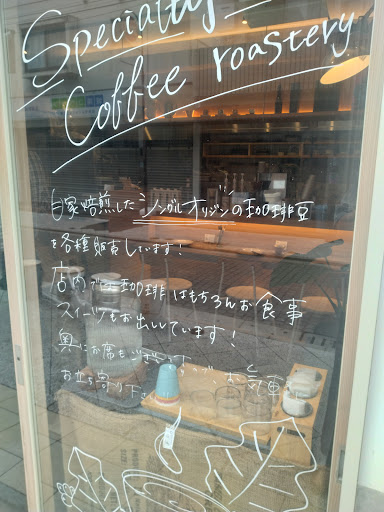 Specialty
Coffee roastery
自家焙煎したシングルオリジンの珈琲豆
を各種販売しています!
店内では珈琲はもちろんお食事
スイーツもお出ししています!
奥にお席もございます
お気軽に
お立ち寄り下さ